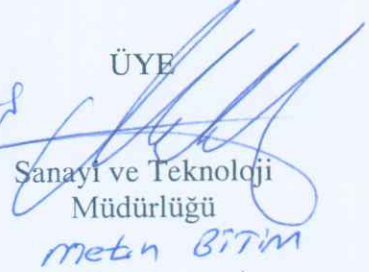 ÜYE
Sanayi ve Teknoloji
Müdürlüğü
Metin BİTİM